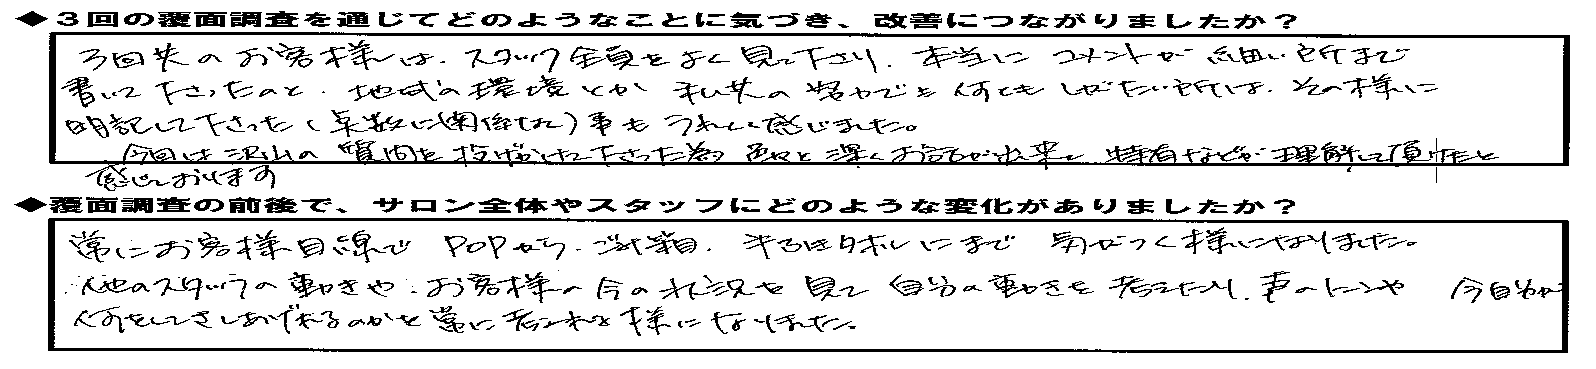 ◆３回の覆面調査を通じてどのようなことに気づき、改善につながりましたか？
３回共のお客様は、スタッフ全員をよく見て下さり、本当にコメントが細い所まで
書いて下さったのと、地域の環境とか私共の努力でも何ともしがたい所は、その様に
明記して下さった(点数に関係なし)事もうれしく感じました。
今回は沢山の質問を投げかけて下さった為、色々と深くお話が出来、特有などが理解して頂けたと
感じております
◆覆面調査の前後で、サロン全体やスタッフにどのような変化がありましたか？
常にお客様目線でPOPから、ご本類、まで気がつく様になりました。
他のスタッフの動きや、お客様の今の状況を見て自分の動きを考えたり、声のトーンや 今自分が
何をしてさしあげれるのかを常に考えれる様になりました。